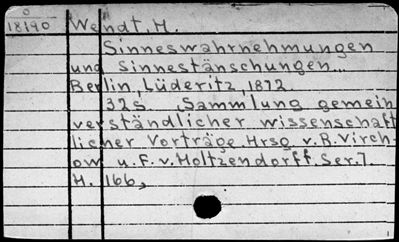 O
18190 Wendt, H.
Sinneswahrnehmungen
und Sinnestänschungen...
Berlin, Lüderitz, 1872.
32s. Sammlung gemein
verständlicher wissenschaft
licher Vorträge. Hrsg. v. R. Virch-
ow u. F. v. Holtzendorff. Ser. 7.
H. 166,